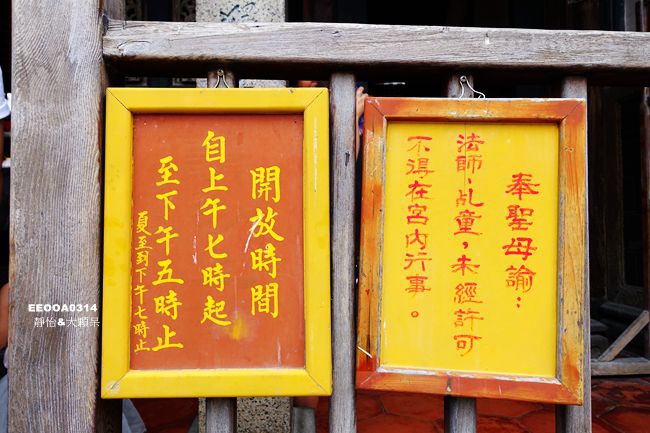 開放時間
自上午七時起
至下午五時止
夏至到下午七時止
奉聖母諭：
法師、乩童，未經許可
不得在宮內行事。
EEOOA0314
靜怡&大顆呆